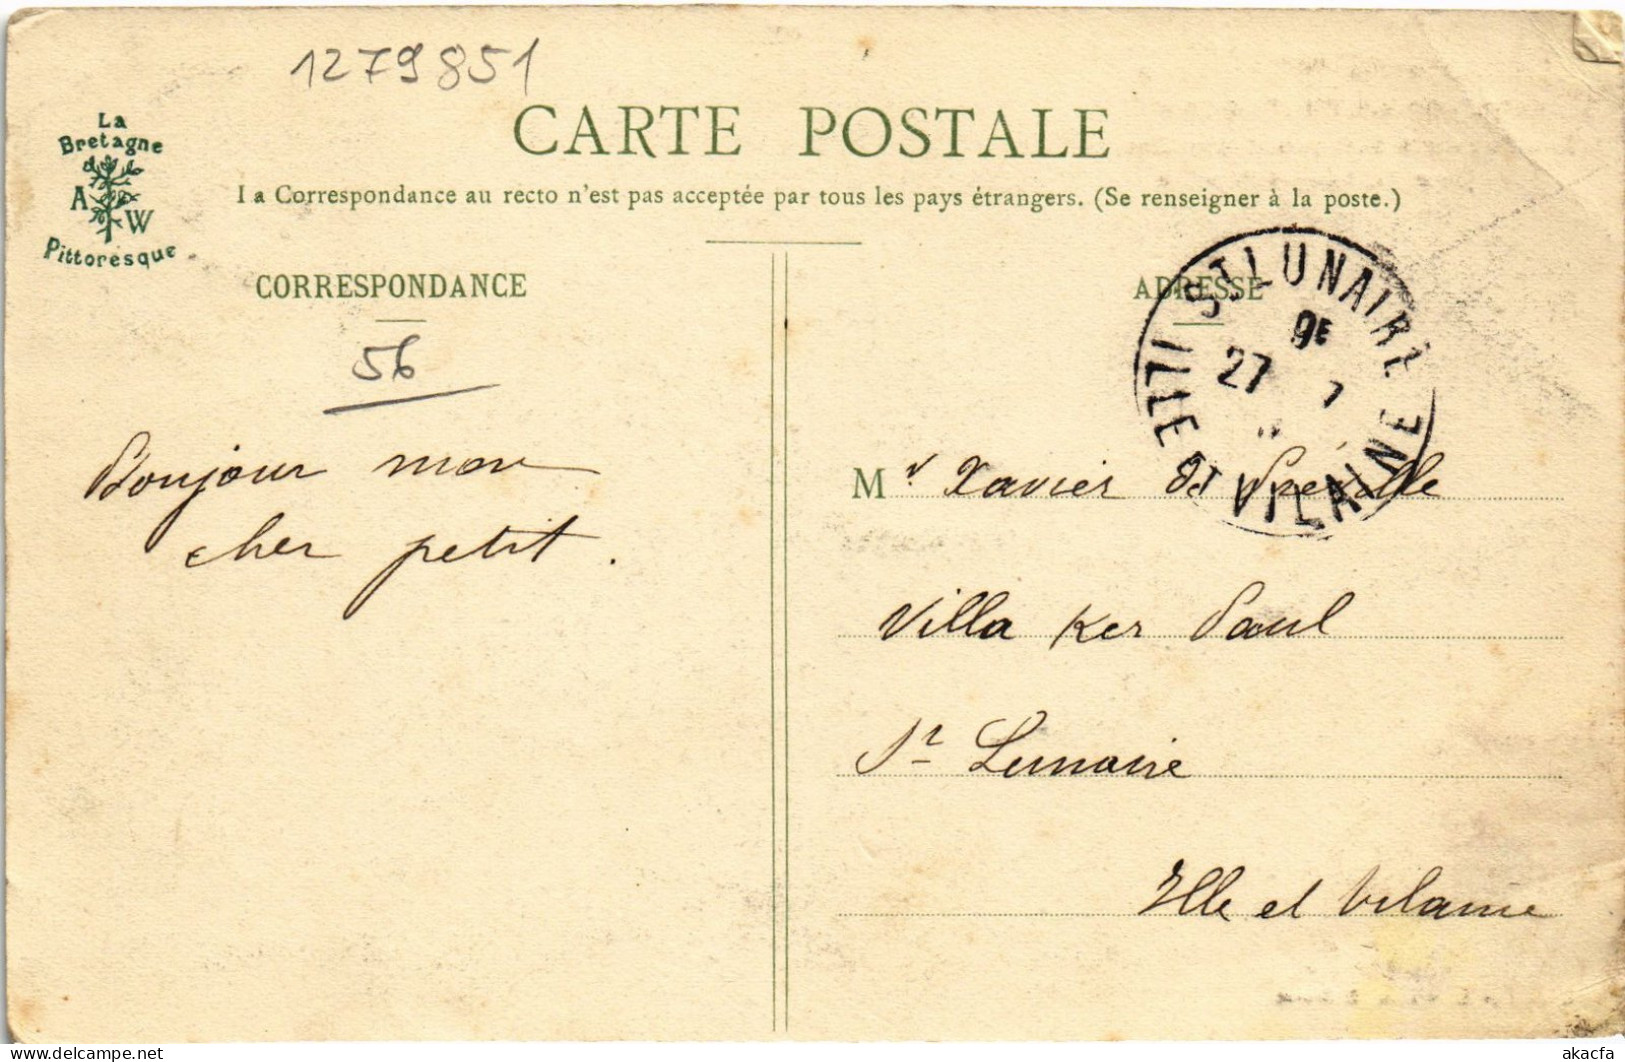 1279851
La
Bretagne
A W
Pittoresque
CARTE POSTALE
La Correspondance au recto n'est pas acceptée par tous les pays étrangers. (Se renseigner à la poste.)
CORRESPONDANCE
56
Bonjour mon
cher petit.
ADRESSE
ST LUNAIRE
9E
27 7
ILLE ET VILAINE
Mr Xavier de Préville
Villa Ker Paul
St Lunaire
Ille et Vilaine
akacfa